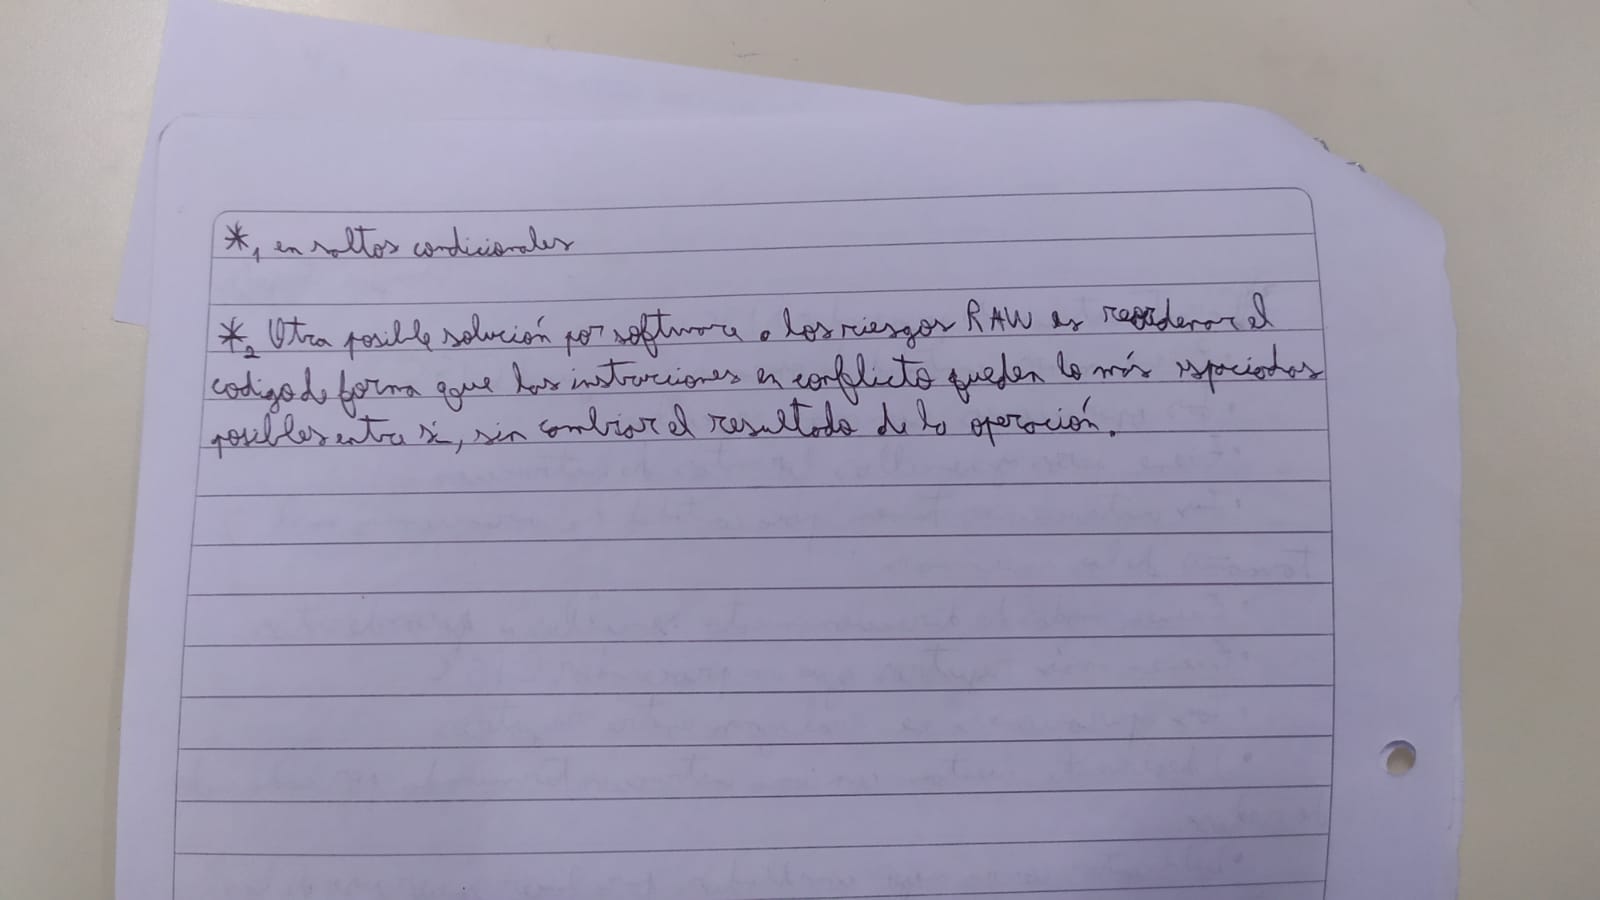 *1 en saltos condicionales
*2 Otra posible solución por software a los riesgos RAW es reordenar el
codigo de forma que las instrucciones en conflicto queden lo más espaciadas
posibles entre si, sin cambiar el resultado de la operación.